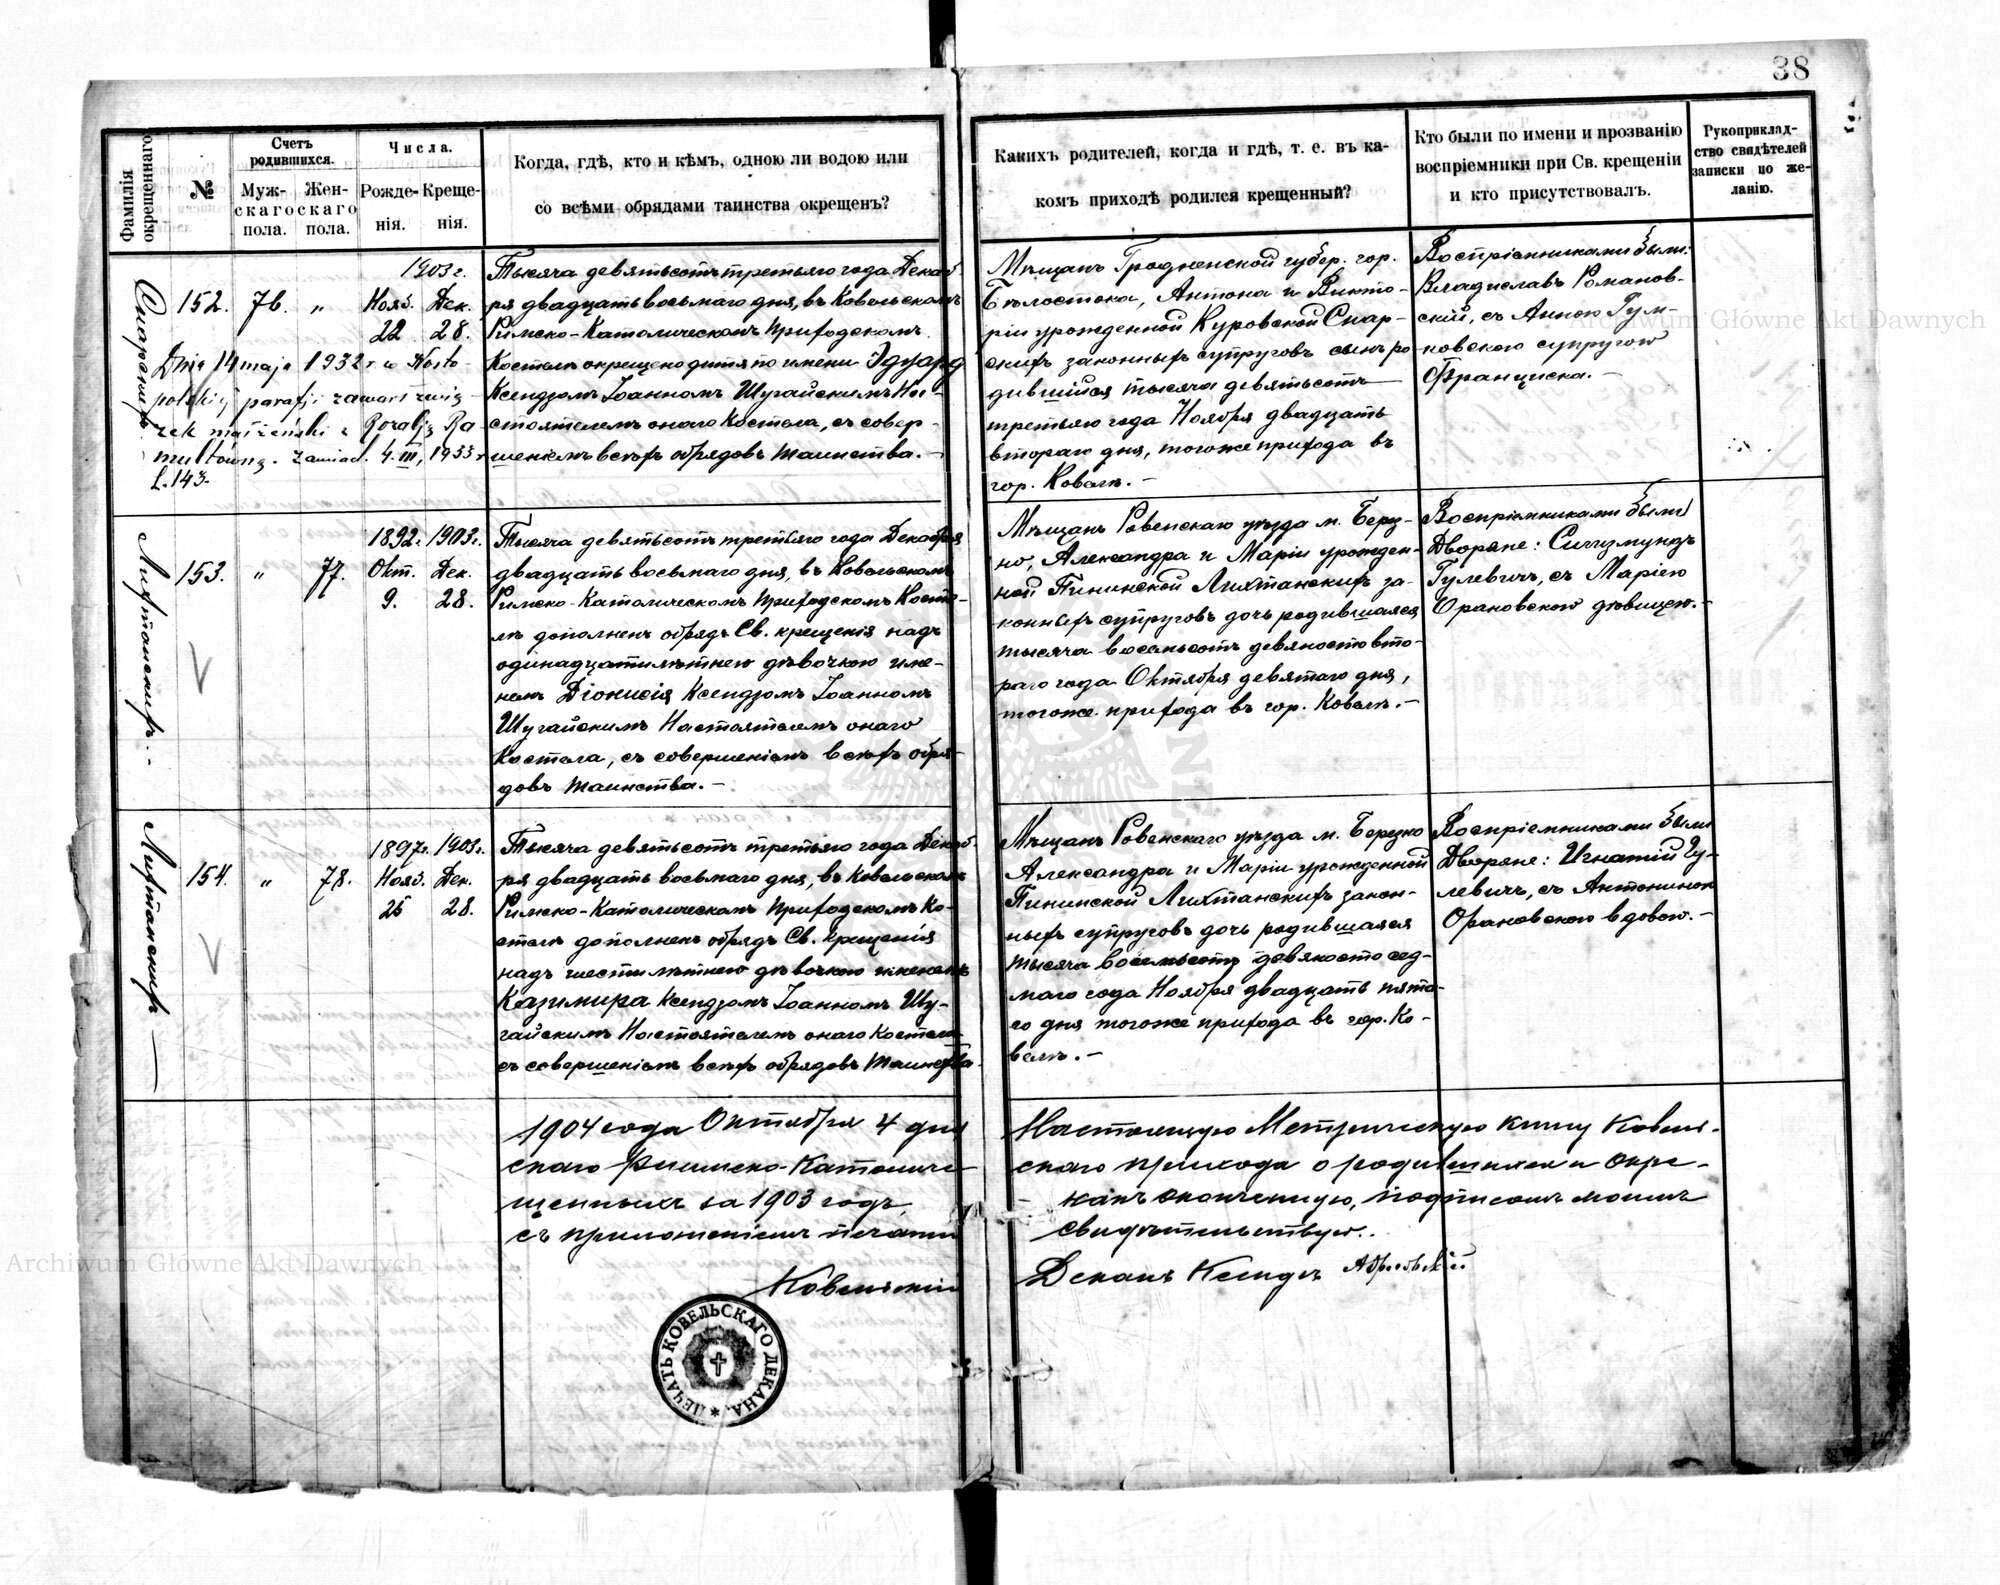 38
Фамилія
окрещеннаго
№
Счетъ
родившихся.
Муж-
скаго
пола.
Жен-
скаго
пола.
Числа.
Рожде-
нія.
Креще-
нія.
Когда, гдѣ, кто и кѣмъ, одною ли водою или
со всѣми обрядами таинства окрещенъ?
Какихъ родителей, когда и гдѣ, т. е. въ ка-
комъ приходѣ родился крещенный?
Кто были по имени и прозванію
воспріемники при Св. крещеніи
и кто присутствовалъ.
Рукоприклад-
ство свидѣтелей
записки по же-
ланію.
152.
76.
"
1903 г.
Нояб. Дек.
22 28.
Dnia 14 maja 1932 r w
polskiej parafji zawarł zwią-
zek małżeński z Rozalją Ra
zawiad. 4.III, 1933 r
L. 143.
Тысяча девятьсотъ третьяго года Декаб
ря двадцать восьмаго дня, въ Ковельскомъ
Римско-Католическомъ Приходскомъ
Костелѣ окрещено дитя по имени Эдуардъ
Ксендзомъ Іоанномъ Шугайскимъ На-
стоятелемъ онаго Костела, съ совер-
шеніемъ всѣхъ обрядовъ таинства. –
Мѣщанъ Гродненской губер. гор.
Бѣлостока, Антона и Викто-
ріи урожденной Куровской Снар-
скихъ законныхъ супруговъ сынъ ро
дившійся тысяча девятьсотъ
третьяго года Ноября двадцать
втораго дня, тогоже прихода въ
гор. Ковелѣ. –
Воспріемниками были:
Владиславъ Романов-
скій, съ Анною Гум-
новскою супругою
Франциска. –
Лихтанскихъ. –
153.
"
77.
1892 г. 1903 г.
Окт. Дек.
9. 28.
Тысяча девятьсотъ третьяго года Декабря
двадцать восьмаго дня, въ Ковельскомъ
Римско-Католическомъ Приходскомъ Косте-
лѣ дополненъ обрядъ Св. крещенія надъ
одинадцатилѣтнею дѣвочкою име-
немъ Діонисія Ксендзомъ Іоанномъ
Шугайскимъ Настоятелемъ онаго
Костела, съ совершеніемъ всѣхъ обря-
довъ таинства. –
Мѣщанъ Ровенскаго уѣзда м. Берез-
но, Александра и Маріи урожден-
ной Пининской Лихтанскихъ за-
конныхъ супруговъ дочь родившаяся
тысяча восемьсотъ девяносто вто-
раго года Октября девятаго дня,
тогоже прихода въ гор. Ковелѣ. –
Воспріемниками были
Дворяне: Сигизмундъ
Гулевичъ, съ Маріею
Орановскою дѣвицею. –
Лихтанскихъ –
154.
"
78.
1897 г. 1903 г.
Нояб. Дек.
25 28.
Тысяча девятьсотъ третьяго года Декаб-
ря двадцать восьмаго дня, въ Ковельскомъ
Римско-Католическомъ Приходскомъ Ко-
стелѣ дополненъ обрядъ Св. крещенія
надъ шестилѣтнею дѣвочкою именемъ
Казимира Ксендзомъ Іоанномъ Шу-
гайскимъ Настоятелемъ онаго Костела
съ совершеніемъ всѣхъ обрядовъ таинства.
Мѣщанъ Ровенскаго уѣзда м. Березно
Александра и Маріи урожденной
Пининской Лихтанскихъ закон-
ныхъ супруговъ дочь родившаяся
тысяча восемьсотъ девяносто сед-
маго года Ноября двадцать пята-
го дня тогоже прихода въ гор. Ко-
велѣ. –
Воспріемниками были
Дворяне: Игнатій Гу-
левичъ, съ Антониною
Орановскою вдовою. –
1904 года Октября 4 дня Настоящую Метрическую книгу Ковель-
скаго Римско-Католиче- скаго прихода о родившихся и окре-
щенныхъ за 1903 годъ, какъ оконченную, подписомъ моимъ
съ приложеніемъ печати свидѣтельствую.
Ковельскій Деканъ Ксендзъ
ПЕЧАТЬ КОВЕЛЬСКАГО ДЕКАНА.
Archiwum Główne Akt Dawnych
Archiwum Główne Akt Dawnych